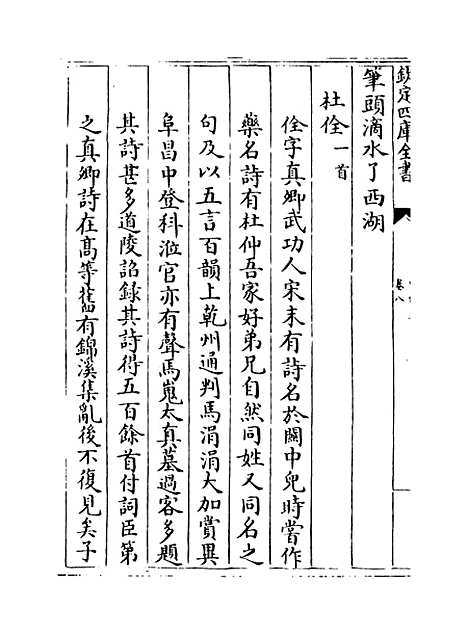 欽定四庫全書
卷八
筆頭滴水了西湖
杜佺一首
佺字真卿武功人宋末有詩名於關中兒時嘗作
藥名詩有杜仲吾家好弟兄自然同姓又同名之
句及以五言百韻上乾州通判馬涓涓大加賞異
阜昌中登科涖官亦有聲馬嵬太真墓過客多題
其詩甚多道陵詔録其詩得五百餘首付詞臣第
之真卿詩在高等舊有錦溪集亂後不復見矣子